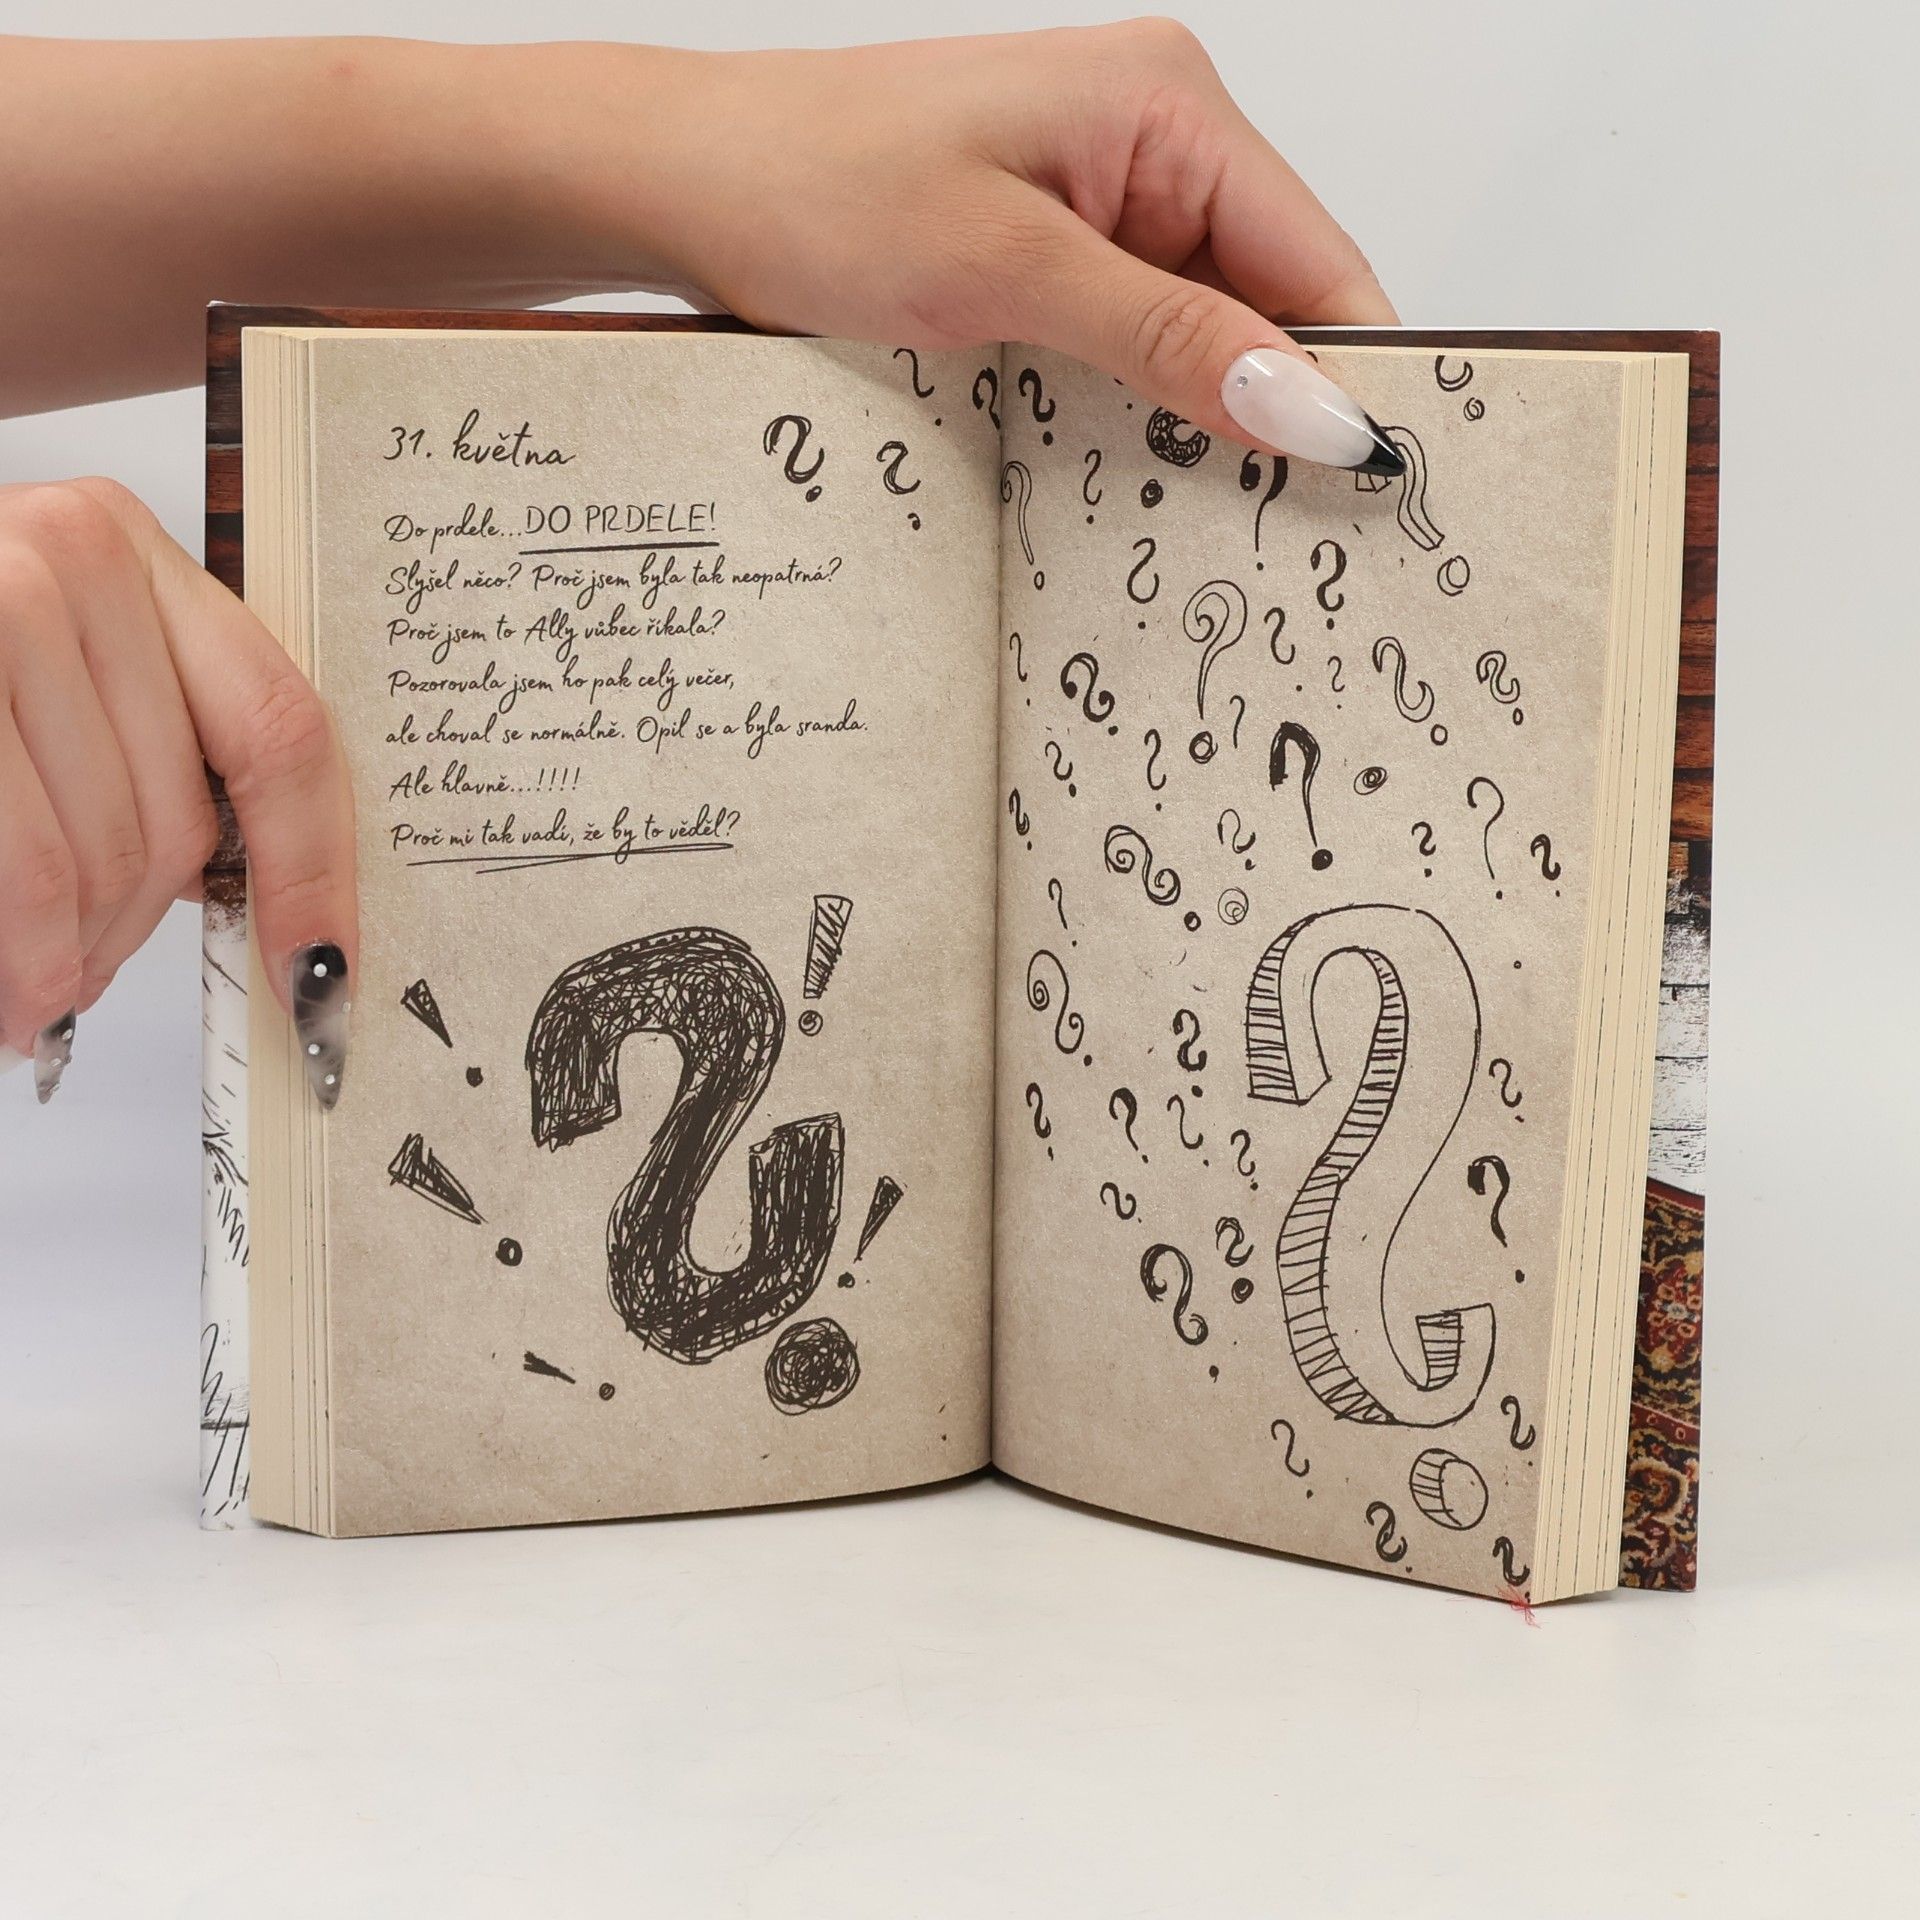 31. května
Do prdele...DO PRDELE!
Slyšel něco? Proč jsem byla tak neopatrná?
Proč jsem to Ally vůbec říkala?
Pozorovala jsem ho pak celý večer,
ale choval se normálně. Opil se a byla sranda.
Ale hlavně...!!!!
Proč mi tak vadí, že by to věděl?